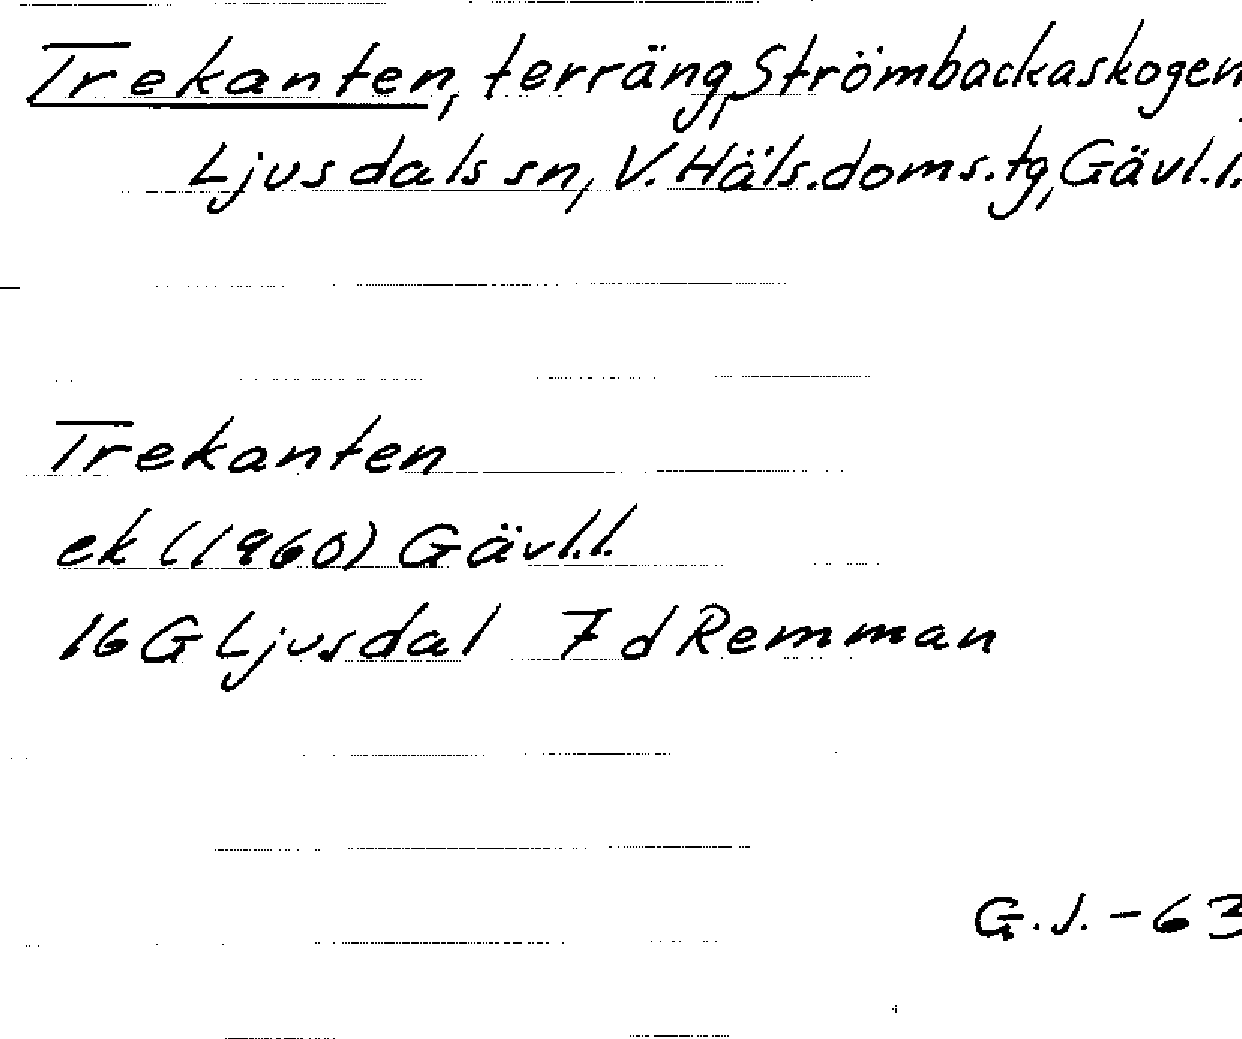 Trekanten, terräng, Strömbackaskogen,
Ljusdals sn, V. Häls. doms. tg, Gävl. l.
Trekanten
ek (1960) Gävl. l.
16 G Ljusdal 7 d Remman
G. J. - 63